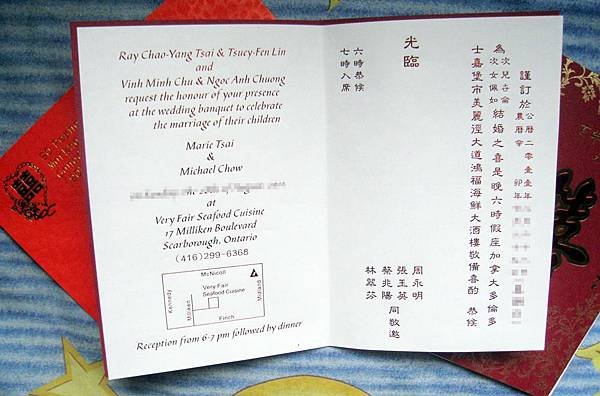 Ray Chao-Yang Tsai & Tsuey-Fen Lin
and
Vinh Minh Chu & Ngoc Anh Chuong
request the honour of your presence
at the wedding banquet to celebrate
the marriage of their children
Marie Tsai
&
Michael Chow
at
Very Fair Seafood Cuisine
17 Milliken Boulevard
Scarborough, Ontario
(416) 299-6368
McNicoll
Kennedy
Milliken
Very Fair
Seafood Cuisine
Midland
Finch
Reception from 6-7 pm followed by dinner
謹訂於公曆二零一一年
農曆辛卯年
為次兒卉倫
次女佩如結婚之喜是晚六時假座加拿大多倫多
士嘉堡市美麗徑大道鴻福海鮮大酒樓敬備喜酌 恭候
光臨
六時恭候
七時入席
周永明
張玉英
蔡兆陽
林翠芬
同敬邀